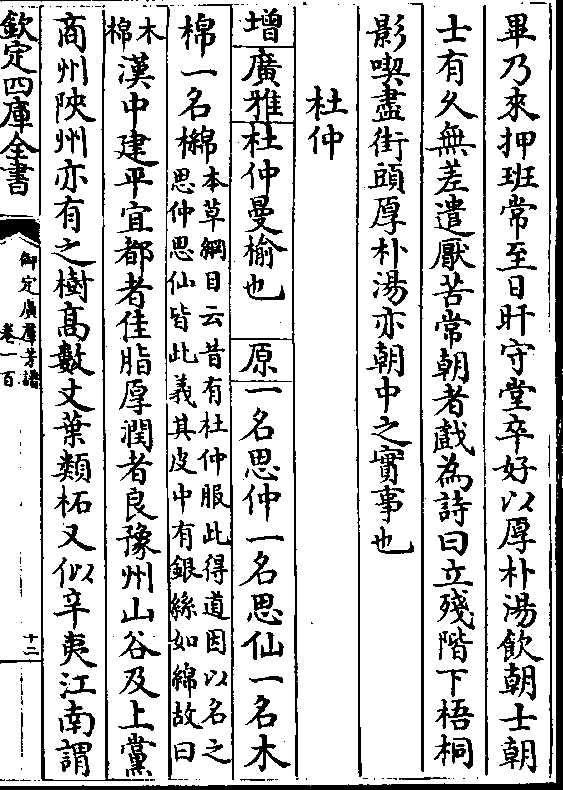 畢乃來押班常至日旰守堂卒好以厚朴湯飲朝士朝
士有久無差遣厭苦常朝者戲為詩曰立殘階下梧桐
影喫盡街頭厚朴湯亦朝中之實事也
杜仲
增廣雅杜仲曼榆也 原一名思仲一名思仙一名木
棉一名檰本草綱目云昔有杜仲服此得道因以名之
思仲思仙皆此義其皮中有銀絲如綿故曰
木棉漢中建平宜都者佳脂厚潤者良豫州山谷及上黨
商州陜州亦有之樹高數丈葉類柘又似辛夷江南謂
欽定四庫全書
御定廣羣芳譜
卷一百
十二